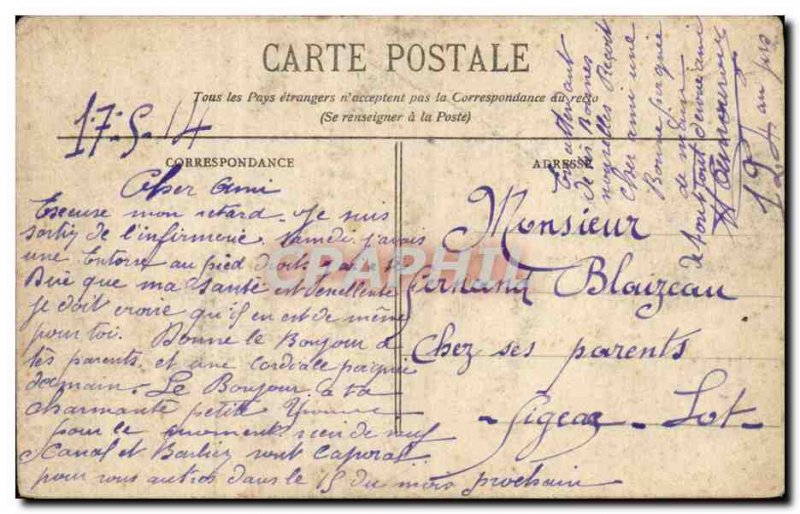 CARTE POSTALE
Tous les Pays étrangers n'acceptent pas la Correspondance au recto
(Se renseigner à la Poste)
17-5-14
CORRESPONDANCE
ADRESSE
Cher Ami
Excuse mon retard. Je suis
sorti de l'infirmerie. Samedi j'avais
une Entorse au pied droit
Dire que ma Santé est
je doit croire qu'il en est de même
pour toi. Donne le Bonjour à
tes parents et une Cordiale poignée
de main. Le Bonjour à ta
charmante petite Yvonne
pour le moment rien de neuf
Canal et Barlier sont Caporal
pour vous autres dans le 15 du mois prochain
Monsieur
Fernand Blaizeau
Chez ses parents
Figeac - Lot -
En attendant
de tes Bonnes
nouvelles Reçoit
cher ami une
Bonne poignée
de main
de ton tout dévoué ami
CPAPHIL